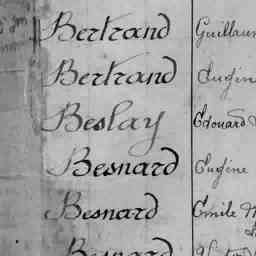 Bertrand Guillaum
Bertrand Eugène
Beslay Edouard
Besnard Eugène
Besnard Emile
Besnard